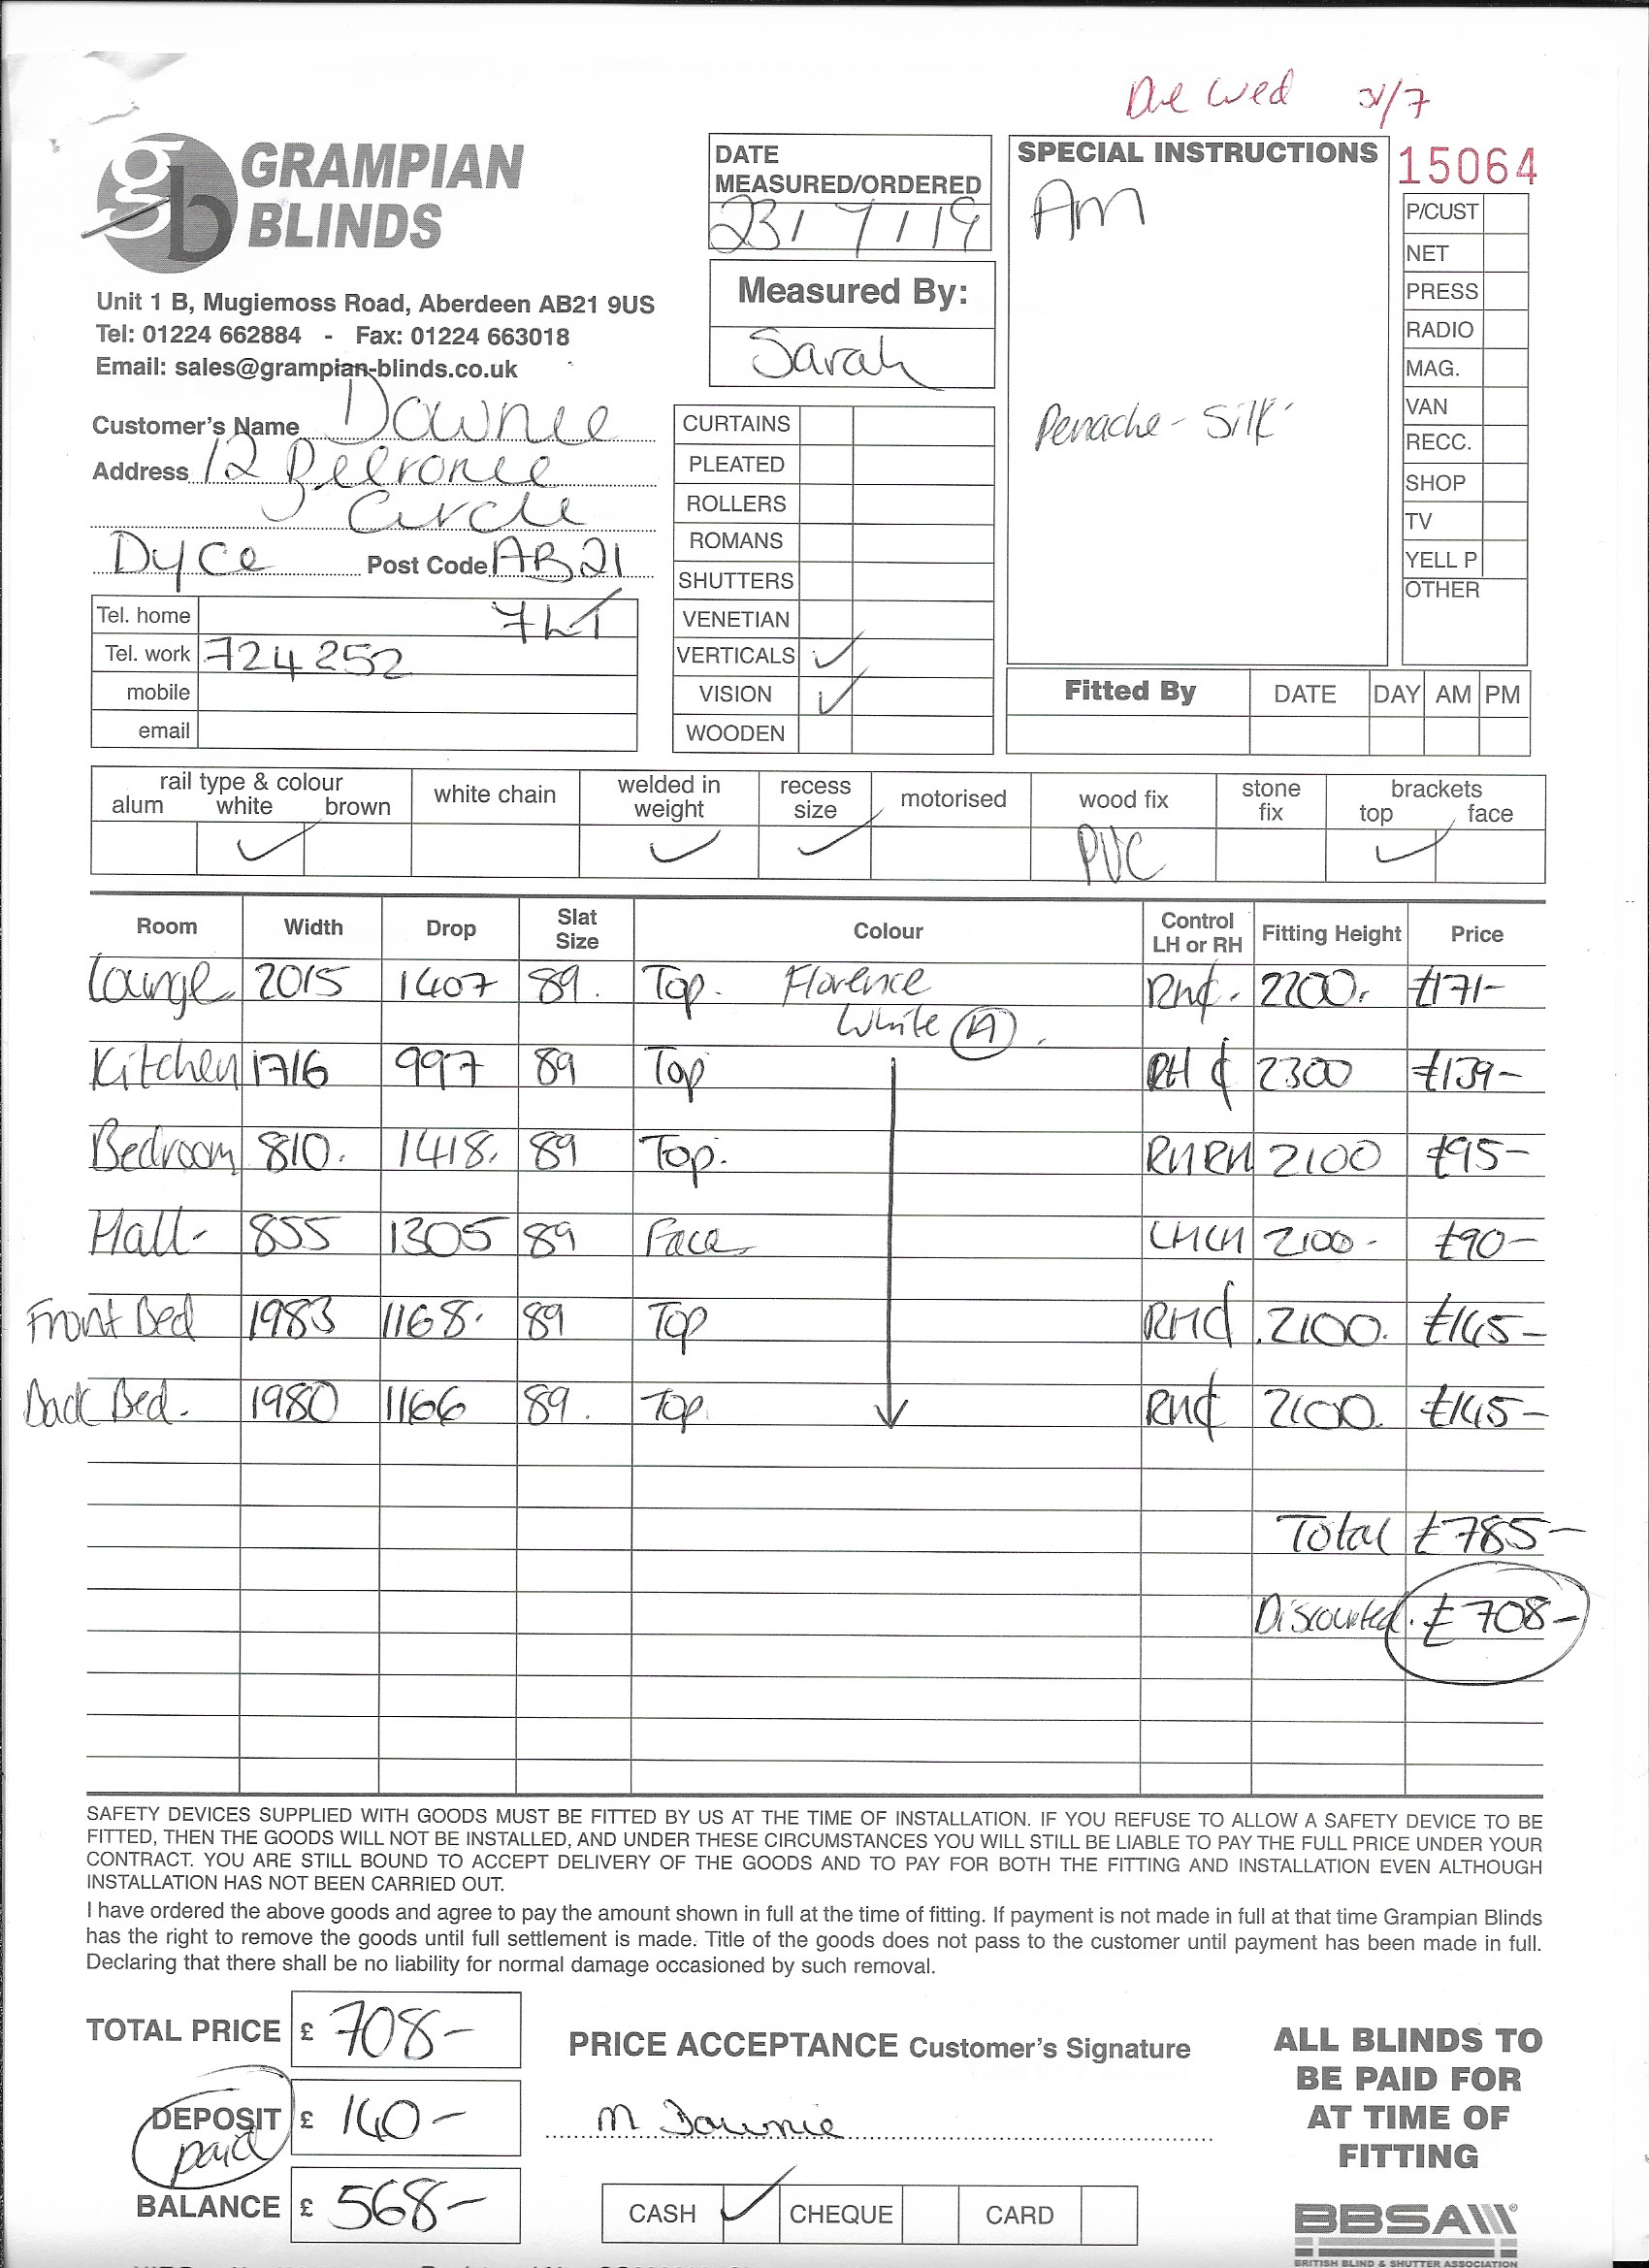 Due Wed 31/7
GRAMPIAN
BLINDS
Unit 1 B, Mugiemoss Road, Aberdeen AB21 9US
Tel: 01224 662884 - Fax: 01224 663018
Email: sales@grampian-blinds.co.uk
DATE
MEASURED/ORDERED
23/7/19
Measured By:
Sarah
SPECIAL INSTRUCTIONS
AM
Penache - Silk
15064
P/CUST
NET
PRESS
RADIO
MAG.
VAN
RECC.
SHOP
TV
YELL P
OTHER
Customer's Name Downie
Address 12
Circle
Dyce Post Code AB21
7LT
Tel. home
Tel. work 724252
mobile
email
CURTAINS
PLEATED
ROLLERS
ROMANS
SHUTTERS
VENETIAN
VERTICALS ✓
VISION ✓
WOODEN
Fitted By DATE DAY AM PM
rail type & colour
alum white brown
✓
white chain
welded in
weight
✓
recess
size
✓
motorised
wood fix
PVC
stone
fix
brackets
top face
✓
Room Width Drop Slat Size Colour Control LH or RH Fitting Height Price
Lounge 2015 1407 89. Top. Florence RH¢. 2200. £171-
White (A).
Kitchen 1716 997 89 Top RH ¢ 2300 £139-
Bedroom 810. 1418. 89 Top. RHRH 2100 £95-
Hall- 855 1305 89 Face LHLH 2100- £90-
Front Bed 1983 1168. 89 Top RH¢ 2100. £145-
Back Bed. 1980 1166 89. Top. RH¢ 2100. £145-
Total £785-
Discounted. £708-
SAFETY DEVICES SUPPLIED WITH GOODS MUST BE FITTED BY US AT THE TIME OF INSTALLATION. IF YOU REFUSE TO ALLOW A SAFETY DEVICE TO BE
FITTED, THEN THE GOODS WILL NOT BE INSTALLED, AND UNDER THESE CIRCUMSTANCES YOU WILL STILL BE LIABLE TO PAY THE FULL PRICE UNDER YOUR
CONTRACT. YOU ARE STILL BOUND TO ACCEPT DELIVERY OF THE GOODS AND TO PAY FOR BOTH THE FITTING AND INSTALLATION EVEN ALTHOUGH
INSTALLATION HAS NOT BEEN CARRIED OUT.
I have ordered the above goods and agree to pay the amount shown in full at the time of fitting. If payment is not made in full at that time Grampian Blinds
has the right to remove the goods until full settlement is made. Title of the goods does not pass to the customer until payment has been made in full.
Declaring that there shall be no liability for normal damage occasioned by such removal.
TOTAL PRICE £ 708-
DEPOSIT £ 140-
paid
BALANCE £ 568-
PRICE ACCEPTANCE Customer's Signature
M Downie
CASH ✓ CHEQUE CARD
ALL BLINDS TO
BE PAID FOR
AT TIME OF
FITTING
BBSA
BRITISH BLIND & SHUTTER ASSOCIATION